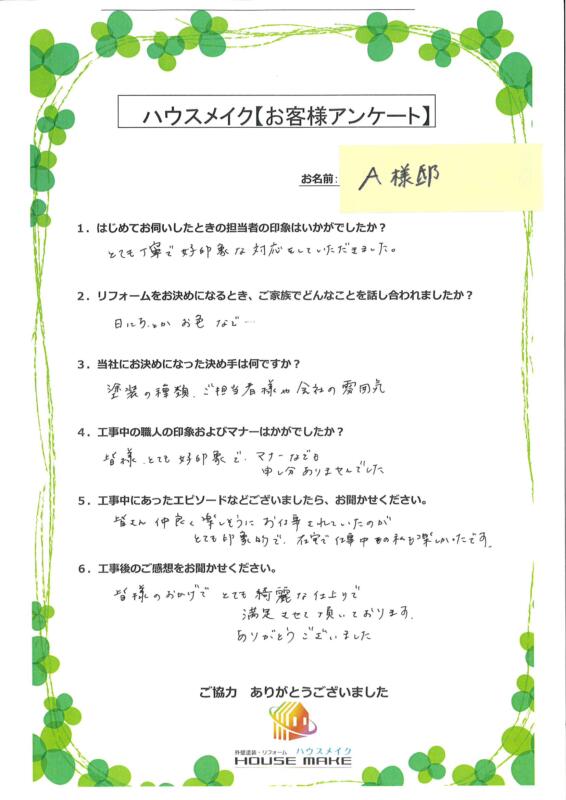 ハウスメイク【お客様アンケート】
お名前: A様邸
１．はじめてお伺いしたときの担当者の印象はいかがでしたか？
とても丁寧で好印象な対応をしていただきました。
２．リフォームをお決めになるとき、ご家族でどんなことを話し合われましたか？
日にちとか お色 など…
３．当社にお決めになった決め手は何ですか？
塗装の種類、ご担当者様や会社の雰囲気
４．工事中の職人の印象およびマナーはかがでしたか？
皆様、とても好印象で、マナーなども
申し分ありませんでした
５．工事中にあったエピソードなどございましたら、お聞かせください。
皆さん仲良く楽しそうにお仕事されていたのが
とても印象的で、在宅で仕事中の私も楽しかったです。
６．工事後のご感想をお聞かせください。
皆様のおかげで とても綺麗な仕上りで
満足させて頂いております。
ありがとうございました
ご協力　ありがとうございました
外壁塗装・リフォーム ハウスメイク
HOUSE MAKE